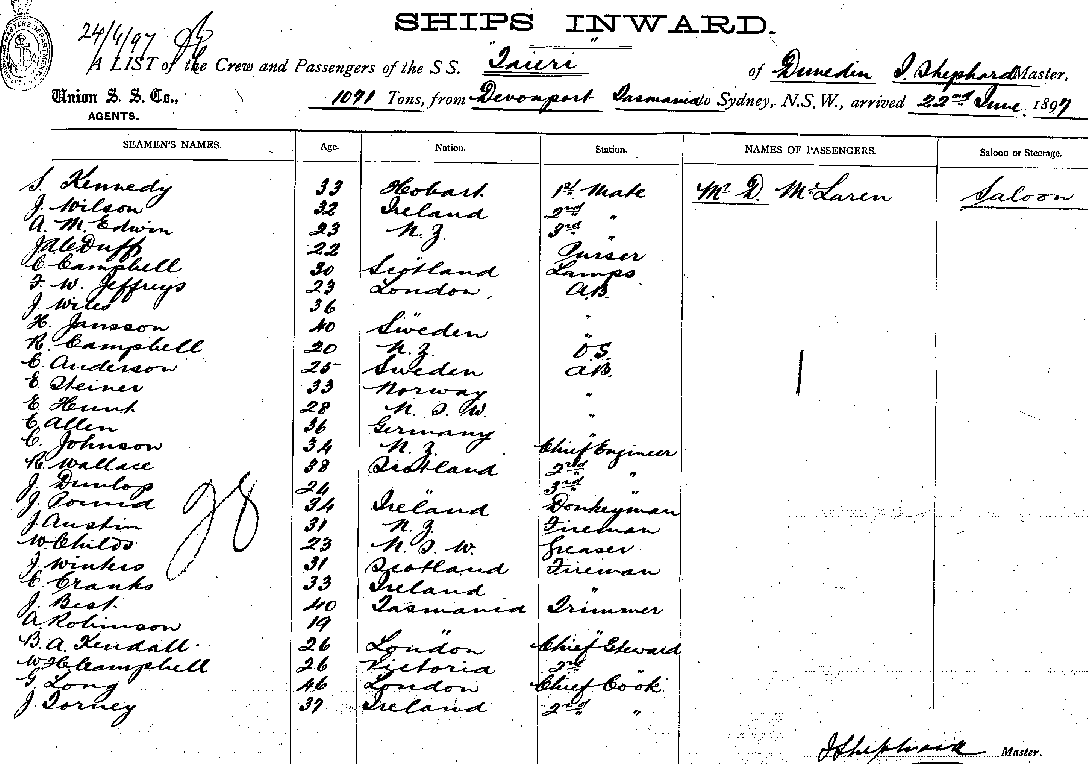 SHIPS INWARD.
24/6/97
A LIST of the Crew and Passengers of the S S. "Taieri" of Dunedin J. Shephard Master,
Union S. S. Co., 1071 Tons, from Devonport Tasmania to Sydney, N.S.W., arrived 22nd June 1897
AGENTS.
SEAMEN'S NAMES. Age. Nation. Station. NAMES OF PASSENGERS. Saloon or Steerage.
S. Kennedy 33 Hobart 1st Mate Mr D. McLaren Saloon
J. Wilson 32 Ireland 2nd "
A. M. Edwin 23 N. Z. 3rd "
J McDuff 22 " Purser
C Campbell 30 Scotland Lamps
F. W. Jeffreys 23 London A.B.
J. Wiles 36 " "
H. Jansson 40 Sweden "
R. Campbell 20 N. Z. O.S.
C. Anderson 25 Sweden A.B.
E Steiner 33 Norway "
E. Hunt 28 N. S. W. "
C Allen 36 Germany "
C. Johnson 34 N. Z. Chief Engineer
R. Wallace 38 Scotland 2nd "
J. Dunlop 24 " 3rd "
J. Pound 34 Ireland Donkeyman
J. Austin 31 N. Z. Fireman
W Childs 23 N. S. W. Greaser
J. Winters 31 Scotland Fireman
C. Cranks 33 Ireland "
J. Best 40 Tasmania Trimmer
A. Robinson 19 " "
B. A. Kendall 26 London Chief Steward
W H Campbell 26 Victoria 2nd "
G Long 46 London Chief Cook
J. Dorney 37 Ireland 2nd "
28
J Shephard Master.